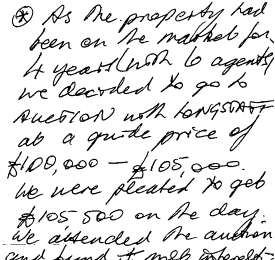 * As the property had
been on the market for
4 years (with 6 agents)
we decided to go to
auction with LONGSTAFF
at a guide price of
£100,000 – £105,000.
We were pleased to get
£105 500 on the day.
We attended the auction
and found it